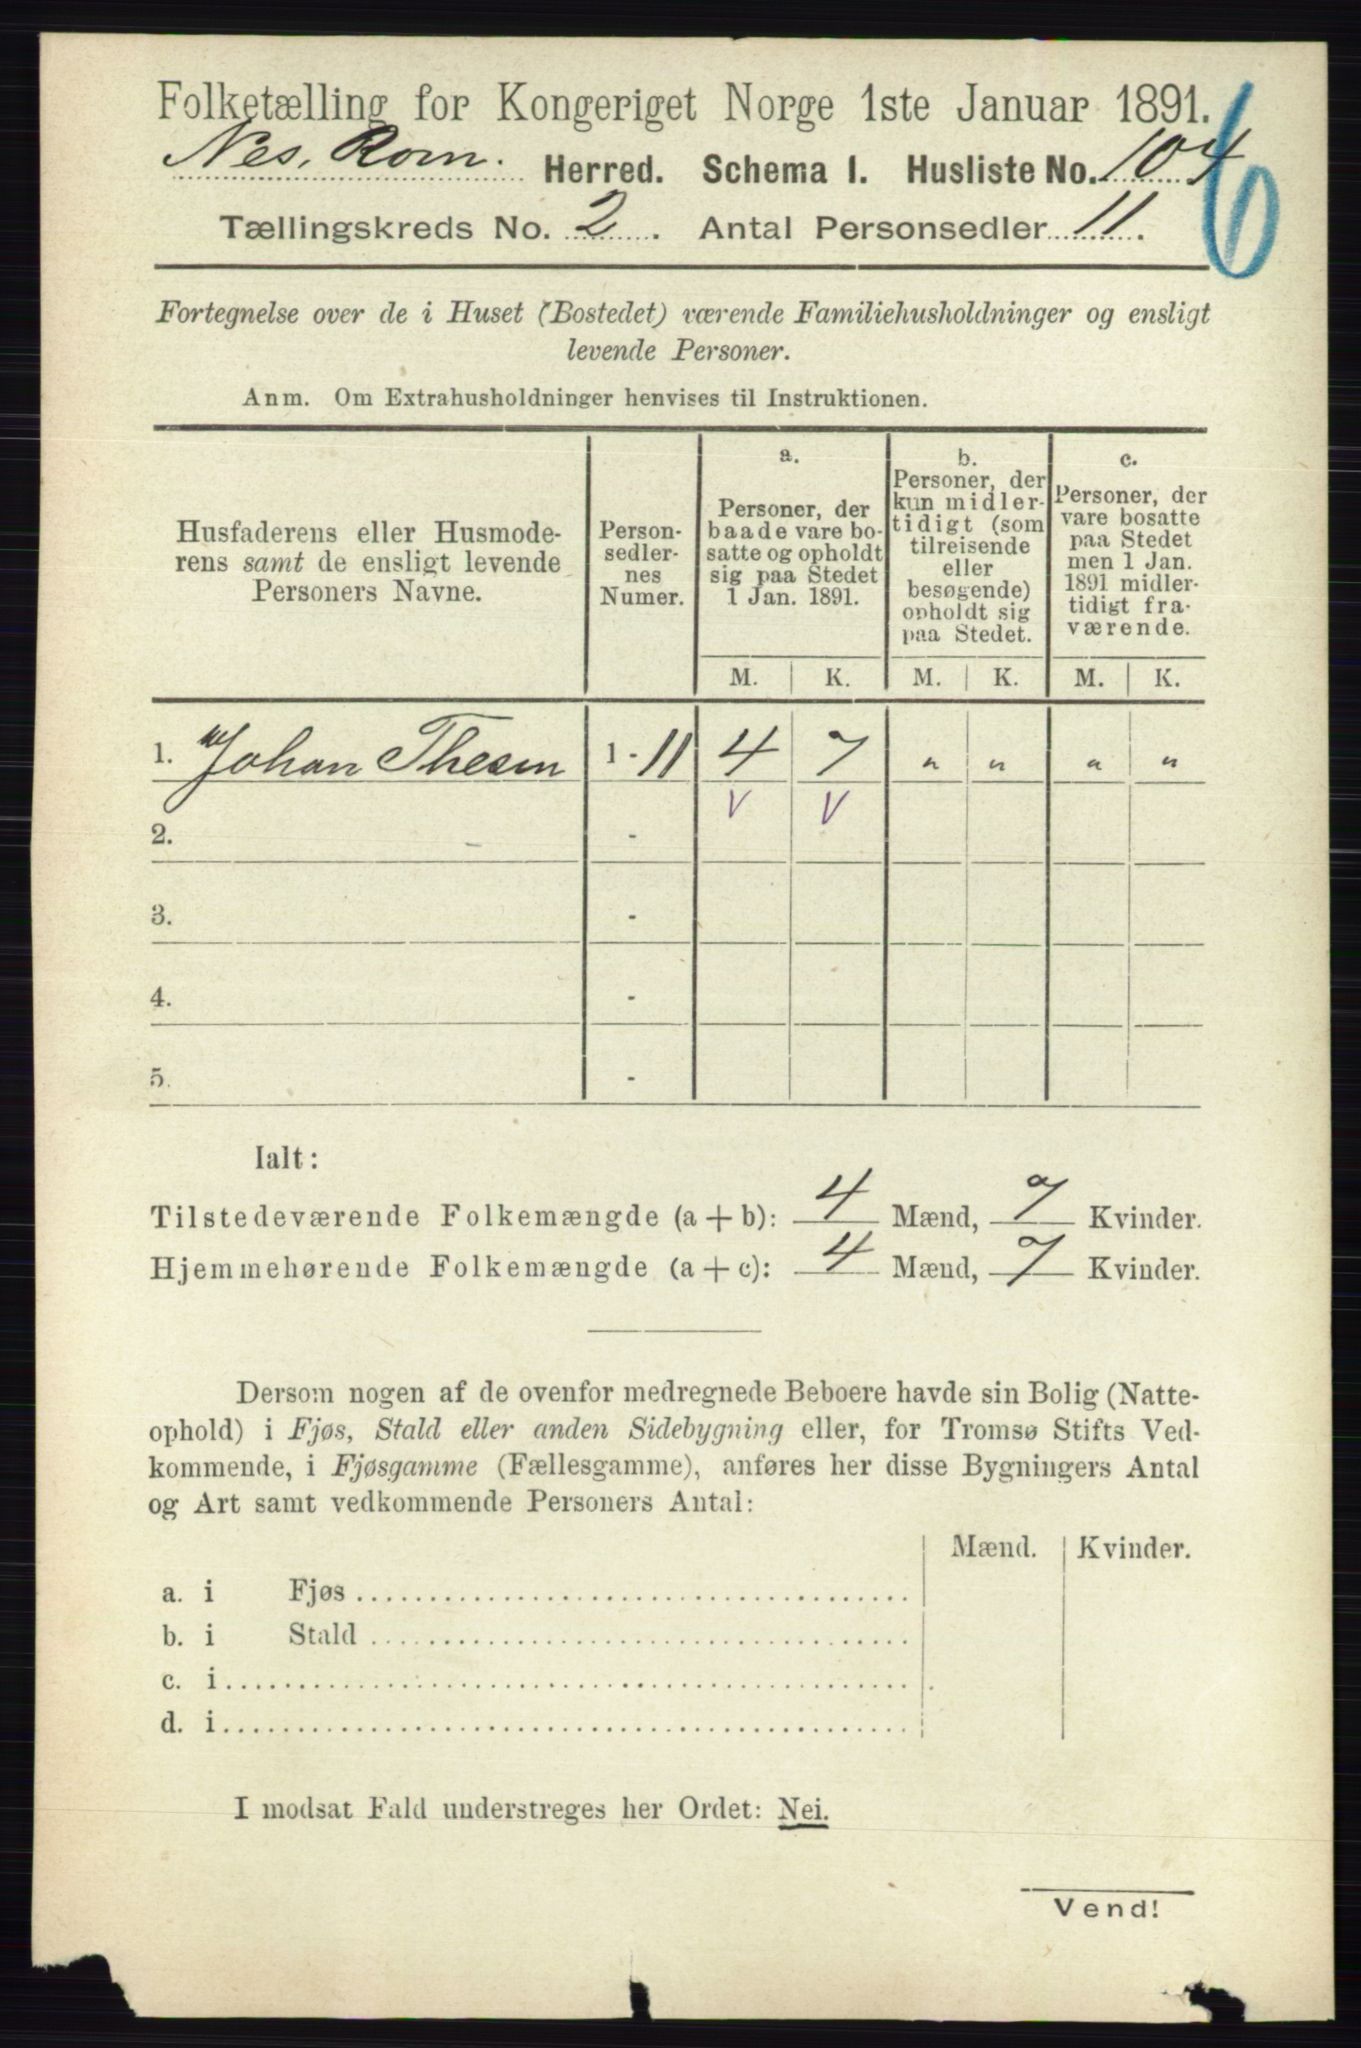 Folketælling for Kongeriget Norge 1ste Januar 1891.
Nes, Rom. Herred. Schema I. Husliste No. 104
6
Tællingskreds No. 2. Antal Personsedler 11.
Fortegnelse over de i Huset (Bostedet) værende Familiehusholdninger og ensligt
levende Personer.
Anm. Om Extrahusholdninger henvises til Instruktionen.
Husfaderens eller Husmode-
rens samt de ensligt levende
Personers Navne.
Person-
sedler-
nes
Numer.
a.
Personer, der
baade vare bo-
satte og opholdt
sig paa Stedet
1 Jan. 1891.
b.
Personer, der
kun midler-
tidigt (som
tilreisende
eller
besøgende)
opholdt sig
paa Stedet.
c.
Personer, der
vare bosatte
paa Stedet
men 1 Jan.
1891 midler-
tidigt fra-
værende.
M. K. M. K. M. K.
1. Johan Thesen 1 - 11 4 7 " " " "
V V
2. -
3. -
4. -
5. -
Ialt:
Tilstedeværende Folkemængde (a + b): 4 Mænd, 7 Kvinder.
Hjemmehørende Folkemængde (a + c): 4 Mænd, 7 Kvinder.
Dersom nogen af de ovenfor medregnede Beboere havde sin Bolig (Natte-
ophold) i Fjøs, Stald eller anden Sidebygning eller, for Tromsø Stifts Ved-
kommende, i Fjøsgamme (Fællesgamme), anføres her disse Bygningers Antal
og Art samt vedkommende Personers Antal:
Mænd. Kvinder.
a. i Fjøs
b. i Stald
c. i
d. i
I modsat Fald understreges her Ordet: Nei.
Vend!